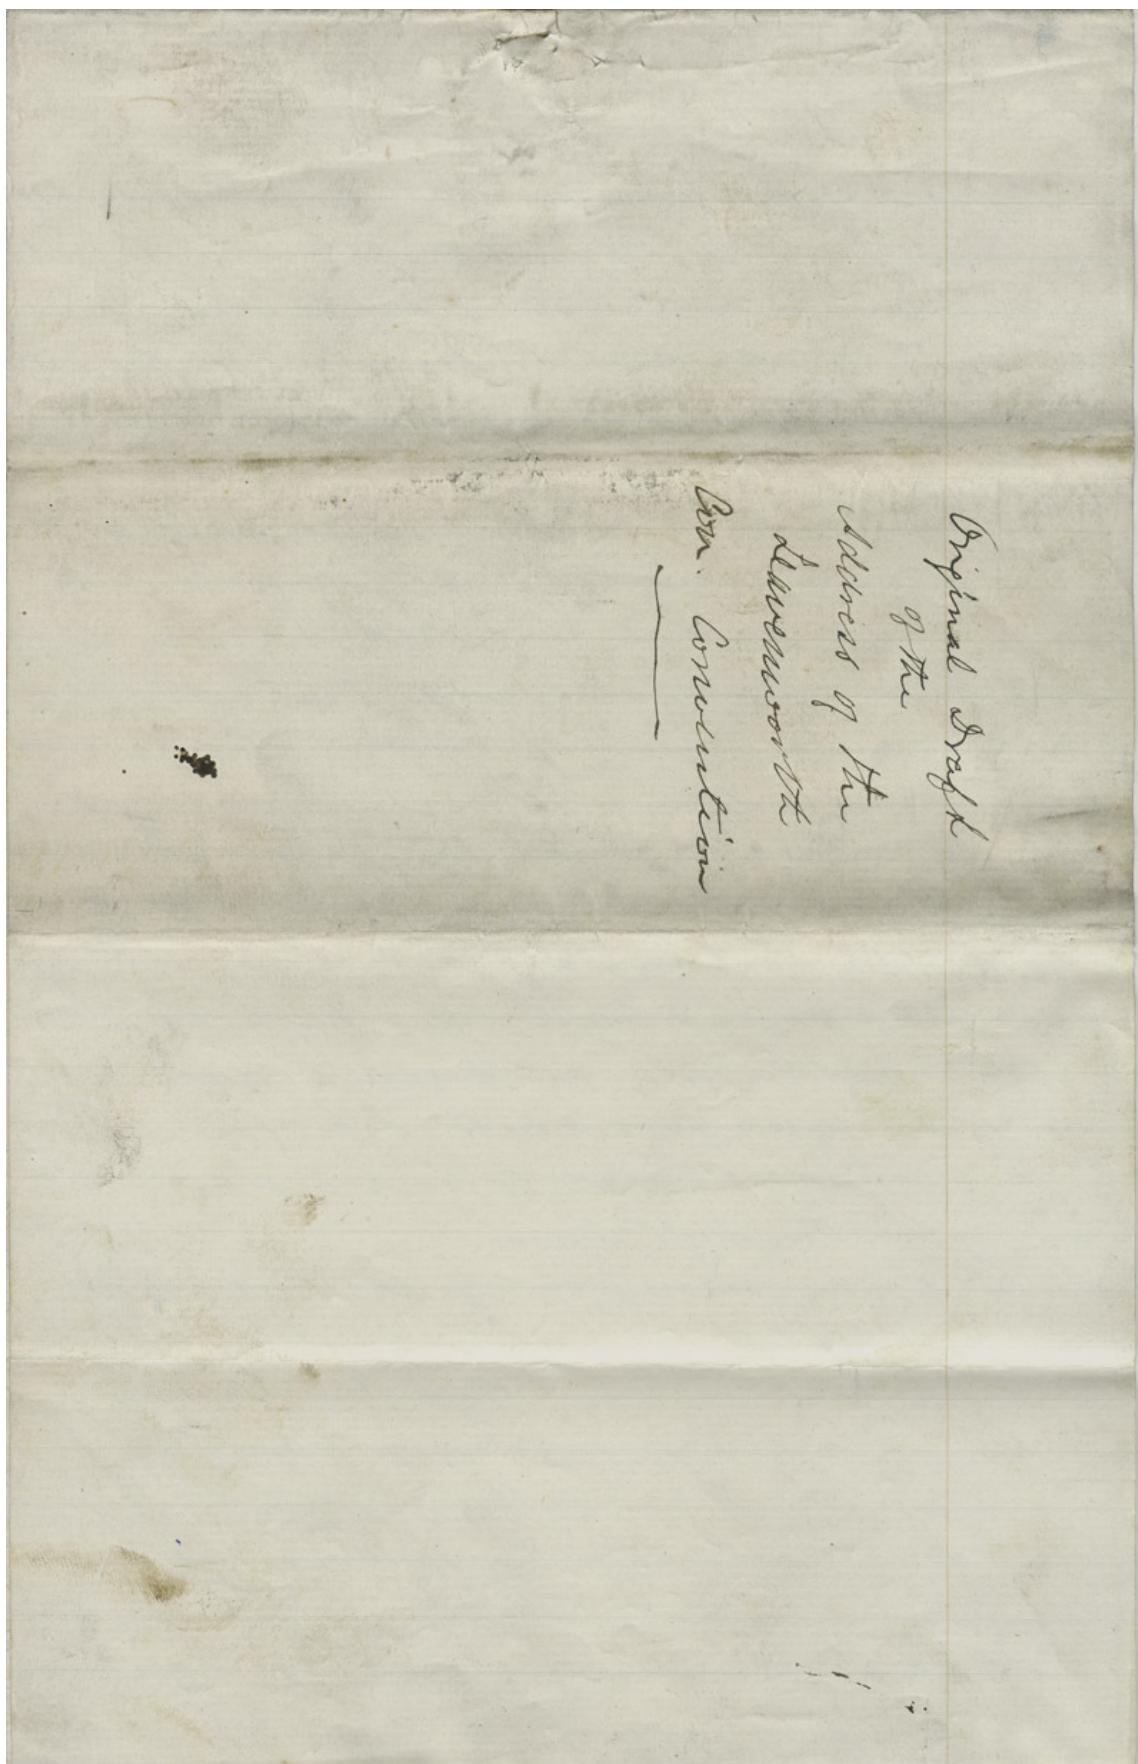 Original Draft
of the
Address of the
Leavenworth
Con. Convention